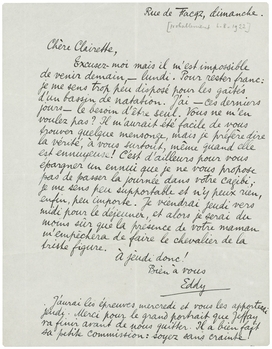 Rue de Facqz, dimanche.
Chère Clairette,
Excusez-moi mais il m'est impossible
de venir demain, — lundi. Pour rester franc:
je me sens trop peu disposé pour les gaîtés
d'un bassin de natation. J'ai — ces derniers
jours — le besoin d'être seul. Vous ne m'en
voulez pas? Il m'aurait été facile de vous
trouver quelque mensonge, mais je préfère dire
la vérité, à vous surtout, même quand elle
est ennuyeuse! C'est d'ailleurs pour vous
épargner un ennui que je ne vous propose
pas de passer la journée dans votre cagibi;
je me sens peu supportable et n'y peux rien,
enfin, peu importe. Je viendrai jeudi vers
midi pour le déjeuner, et alors je serai du
moins sûr que la présence de votre maman
m'empêchera de faire le chevalier de la
triste figure.
À jeudi donc!
Bien à vous
Eddy
J'aurai les épreuves mercredi et vous les apporterai
jeudy. Merci pour le grand portrait que
va finir avant de nous quitter. Il a bien fait
sa petite commission: soyez sans crainte.